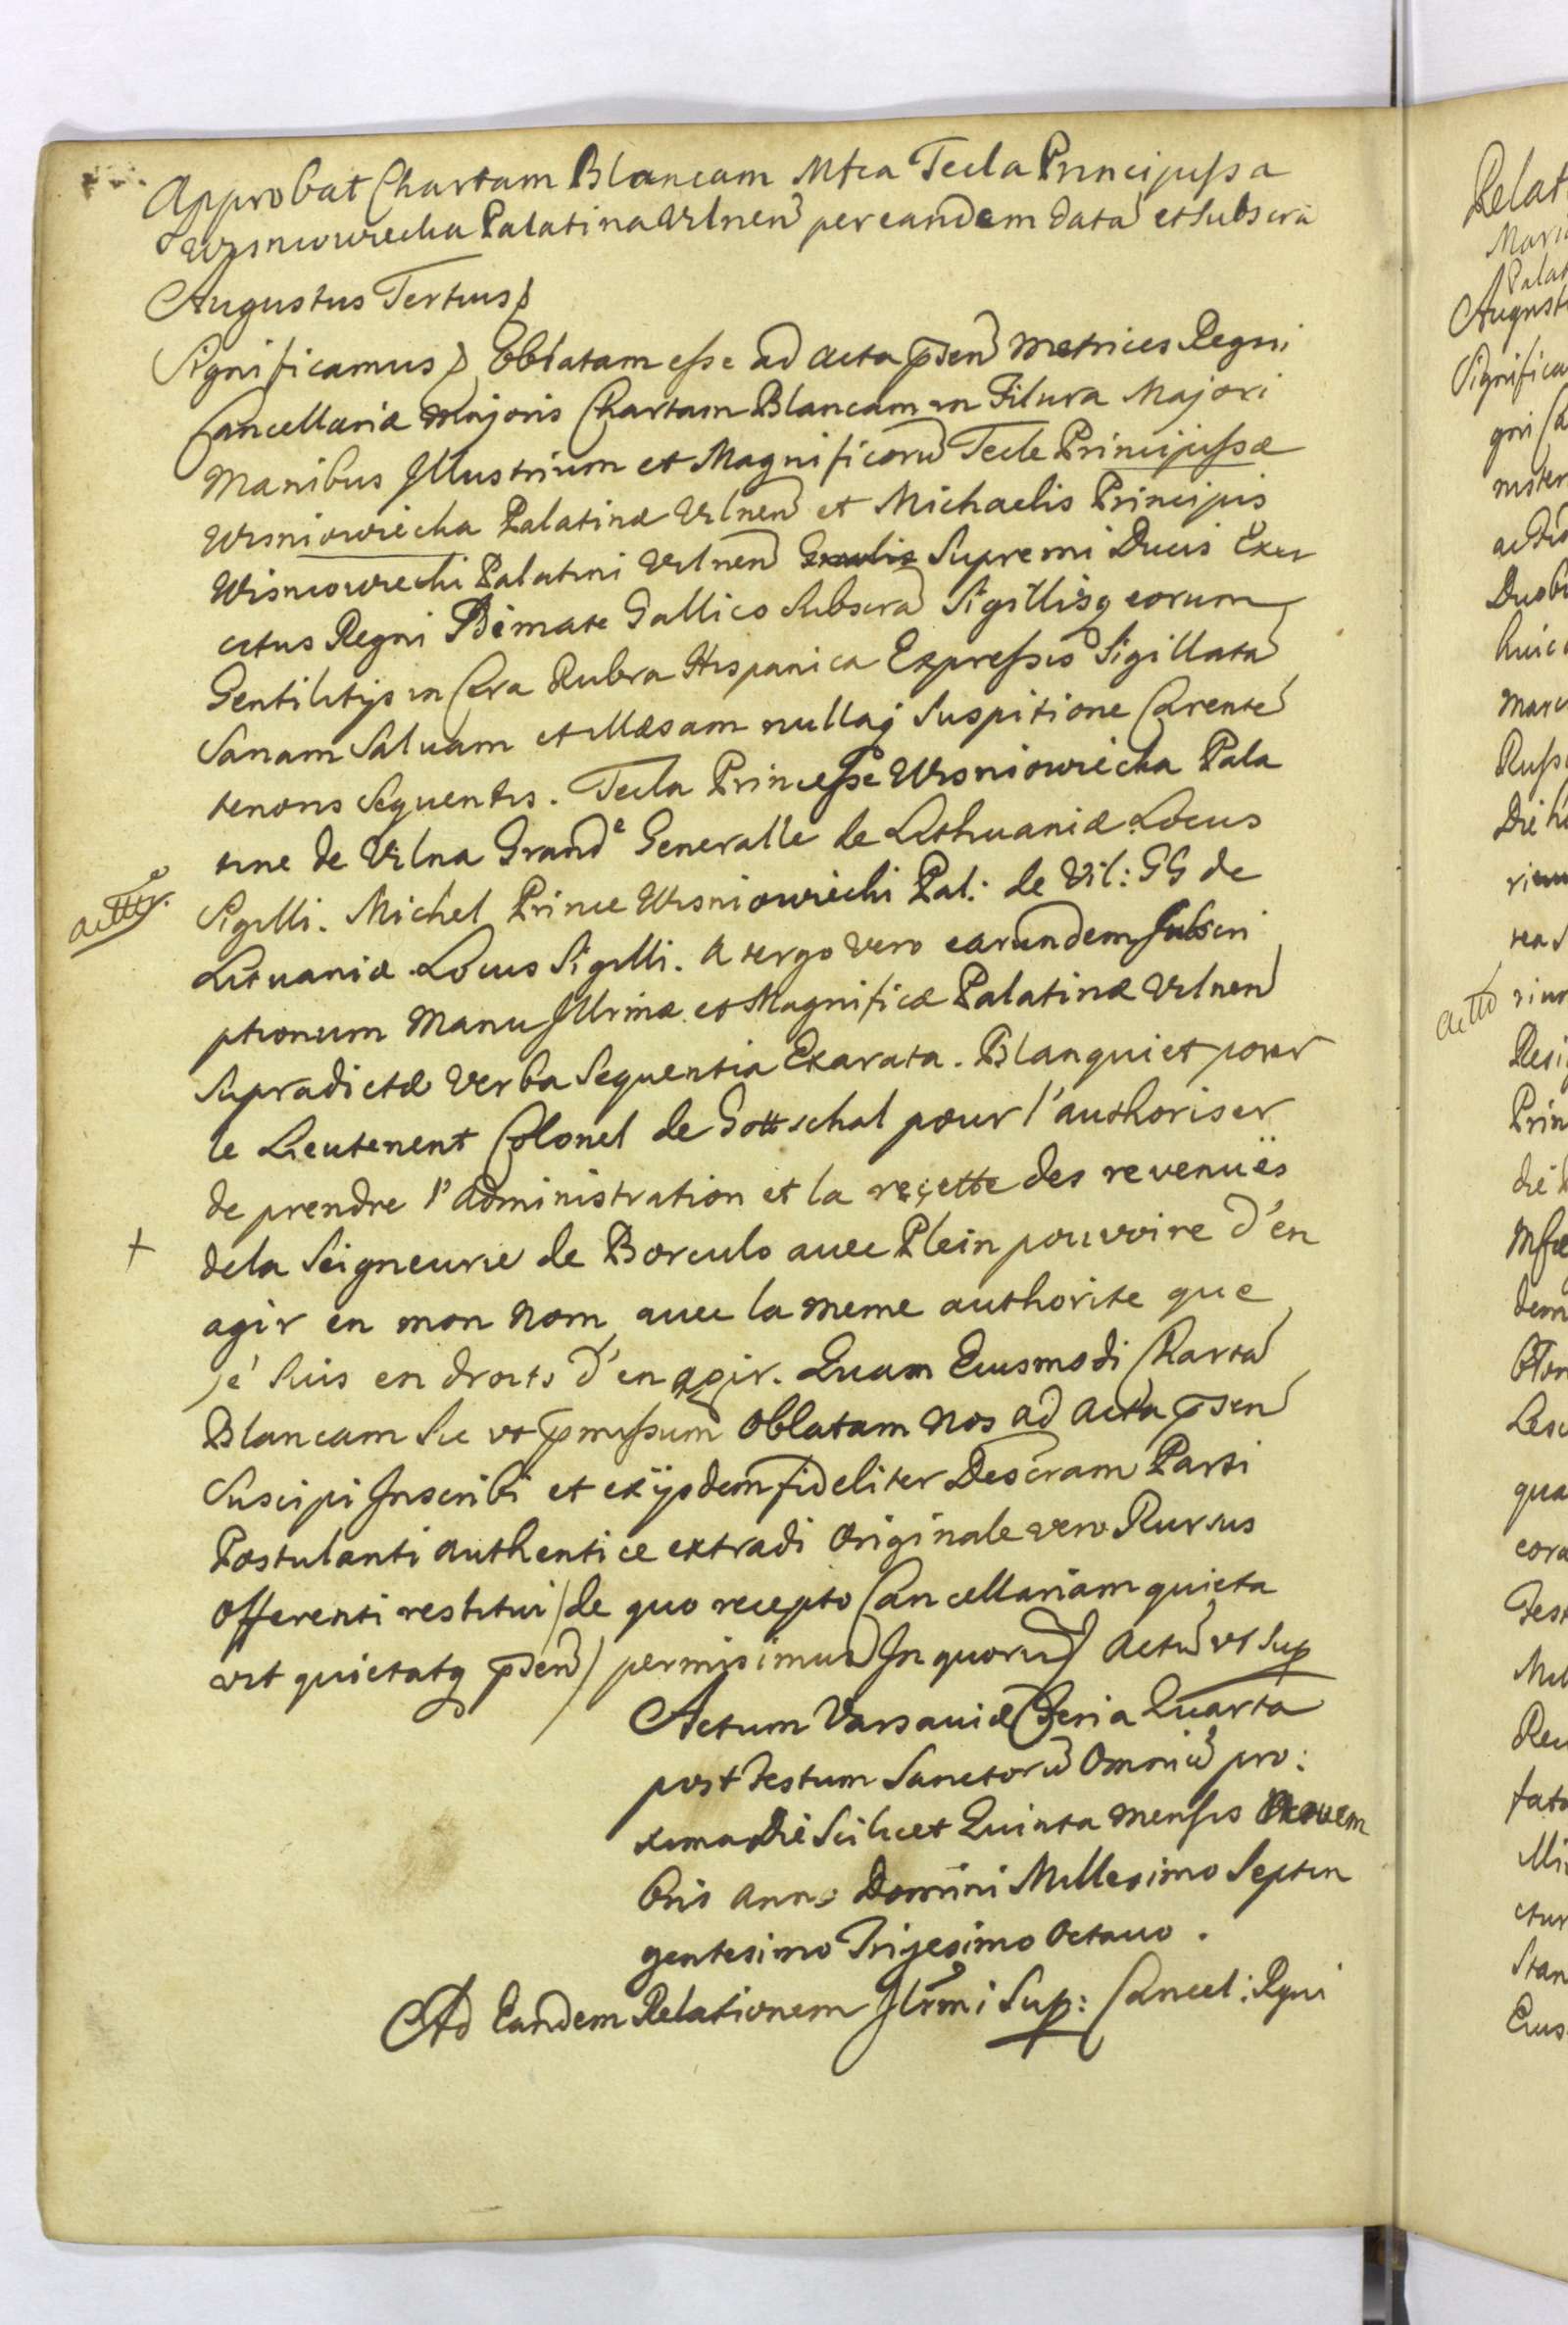 Approbat Chartam Blancam Mfca Tecla Principissa
Wisniowiecka Palatina Vilnen per eandem data et Subscra
Augustus Tertius
Significamus Oblatam esse ad acta psen Metrices Regni
Cancellariæ Majoris Chartam Blancam in Filura Majori
Manibus Illustrium et Magnificoru Tecle Principissæ
Wisniowiecka Palatinæ Vilnen et Michaelis Principis
Wisniowiecki Palatini Vilnen Supremi Ducis Exer
citus Regni Idiomate Gallico Subscra Sigillisq eorum
Gentilitijs in Cera Rubra Hispanica Expressis Sigillata
Sanam Saluam et illæsam nullaq Suspitione Carente
tenoris Sequentis. Tecla Princesse Wisniowiecka Pala
tine de Vilna Grande Generalle de Lithuaniæ Locus
Sigilli. Michel Prince Wisniowiecki Pal: de Vil: GG de
Lituaniæ Locus Sigilli. A tergo vero earundem Subscri
ptionum Manu Illrinæ et Magnificæ Palatinæ Vilnen
Supradictæ Verba Sequentia Exarata. Blanquiet pour
le Lieutenent Colonel de Gottschal pour l'authoriser
de prendre l'administration et la reçette des revenuës
dela Seigneurie de Borculo auec Plein pouvoire d'en
agir en mon Nom, auec la meme authorite que
je' suis en droits d'en agir. Quam Eiusmodi Charta
Blancam Sic vt pmissum Oblatam Nos ad Acta psen
Suscipi Inscribi et exijsdem fideliter Descram Parti
Postulanti authentice extradi Originale vero Rursus
Offerenti restitui /de quo recepto Cancellariam quieta
vit quietatq psen/ permisimus In quoru Actu vt Sup
Actum Varsaviæ Feria Quarta
post Festum Sanctoru Omniu pro:
xima Die Scilicet Quinta Mensis Novem
bris Anno Domini Millesimo Septin
gentesimo Trigesimo Octauo.
Ad Eandem Relationem Illrmi Sup: Cancel: Rgni